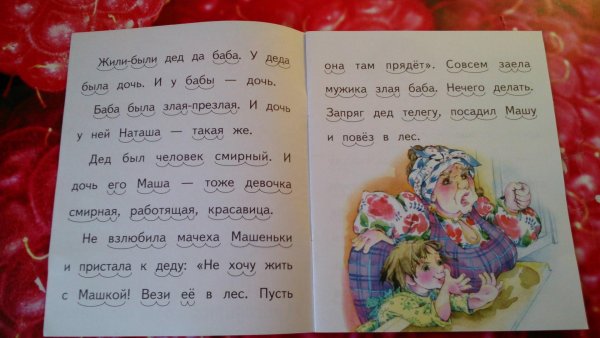 Жили-были дед да баба. У деда
была дочь. И у бабы — дочь.
Баба была злая-презлая. И дочь
у ней Наташа — такая же.
Дед был человек смирный. И
дочь его Маша — тоже девочка
смирная, работящая, красавица.
Не взлюбила мачеха Машеньки
и пристала к деду: «Не хочу жить
с Машкой! Вези её в лес. Пусть
она там прядёт». Совсем заела
мужика злая баба. Нечего делать.
Запряг дед телегу, посадил Машу
и повёз в лес.